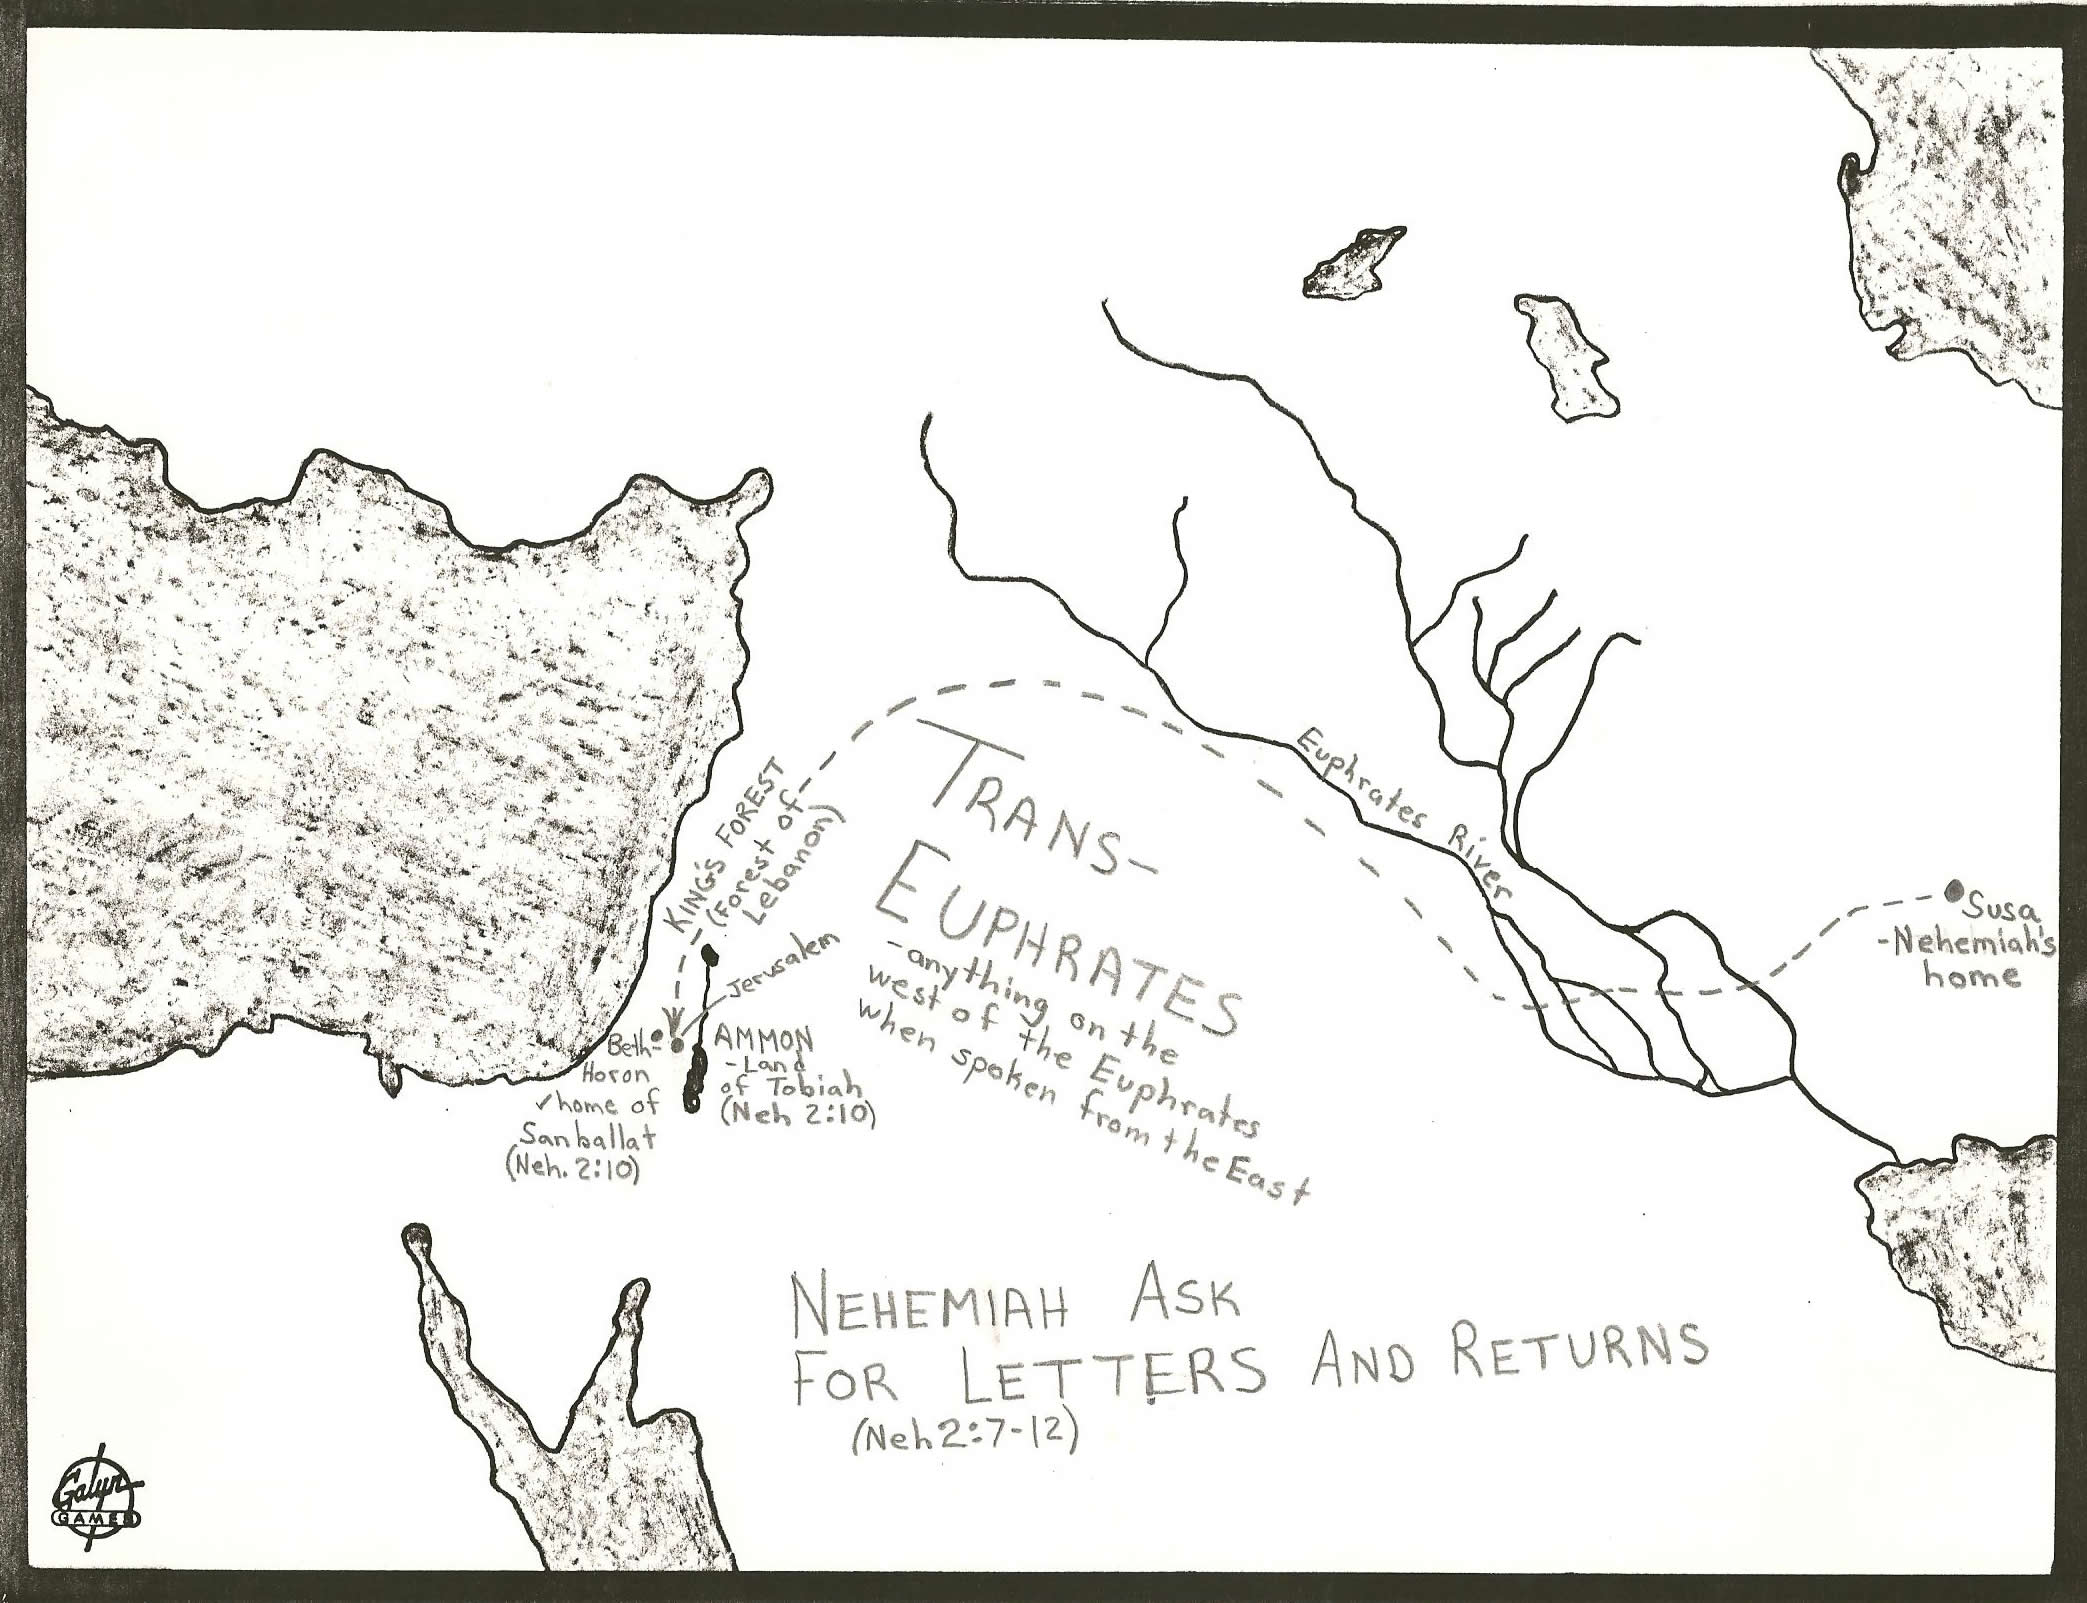 KING'S FOREST
(Forest of
Lebanon)
TRANS-
EUPHRATES
-anything on the
west of the Euphrates
when spoken from the East
Euphrates River
Susa
-Nehemiah's
home
Jerusalem
Beth-
Horon
✓home of
Sanballat
(Neh. 2:10)
AMMON
-Land
of Tobiah
(Neh 2:10)
NEHEMIAH ASK
FOR LETTERS AND RETURNS
(Neh 2:7-12)
Galyn
GAMES